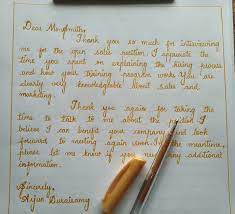 Dear Mr. Smith,
Thank you so much for interviewing
me for the open sales position. I appreciate the
time you spent on explaining the hiring process
and how your training program works. You are
clearly very knowledgeable about sales and
marketing.
Thank you again for taking the
time to talk to me about the
believe I can benefit your company and look
forward to meeting again soon. In the meantime,
please let me know if you need any additional
information.
Sincerely,
Arjun Duraisamy